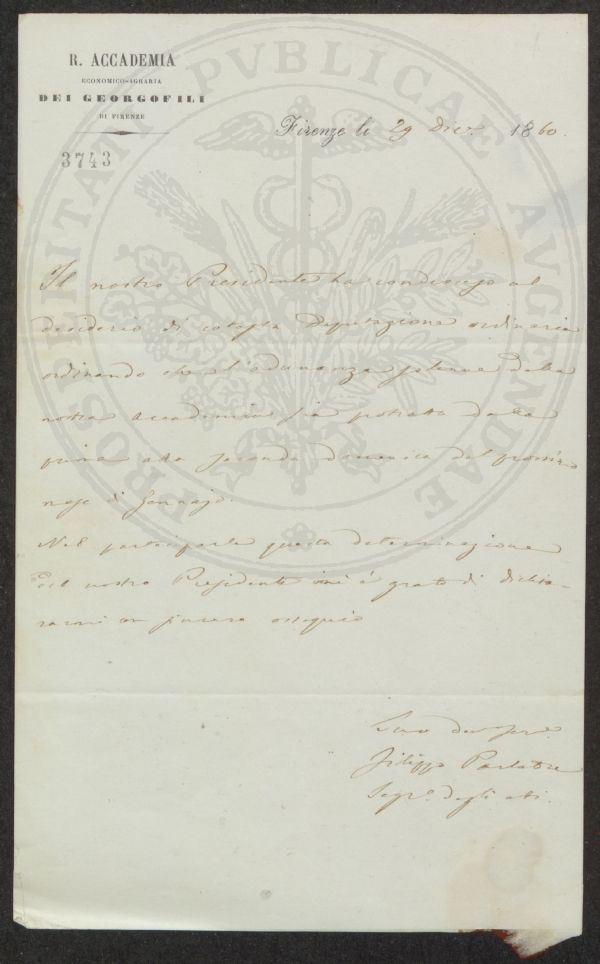 R. ACCADEMIA
ECONOMICO-AGRARIA
DEI GEORGOFILI
DI FIRENZE
3743
Firenze li 29 Dice. 1860.
PROSPERITATI PVBLICAE AVGENDAE
Il nostro Presidente ha condisceso al
desiderio di cotesta Deputazione ordinaria
ordinando che l'Adunanza solenne della
nostra Accademia sia protratta dalla
prima alla seconda domenica del prossimo
mese di Gennajo.
Nel parteciparle questa determinazione
del nostro Presidente mi è grato di dichia-
rarmi con sincero ossequio
Suo dev. serv.
Filippo Parlatore
Segr.o degli atti.